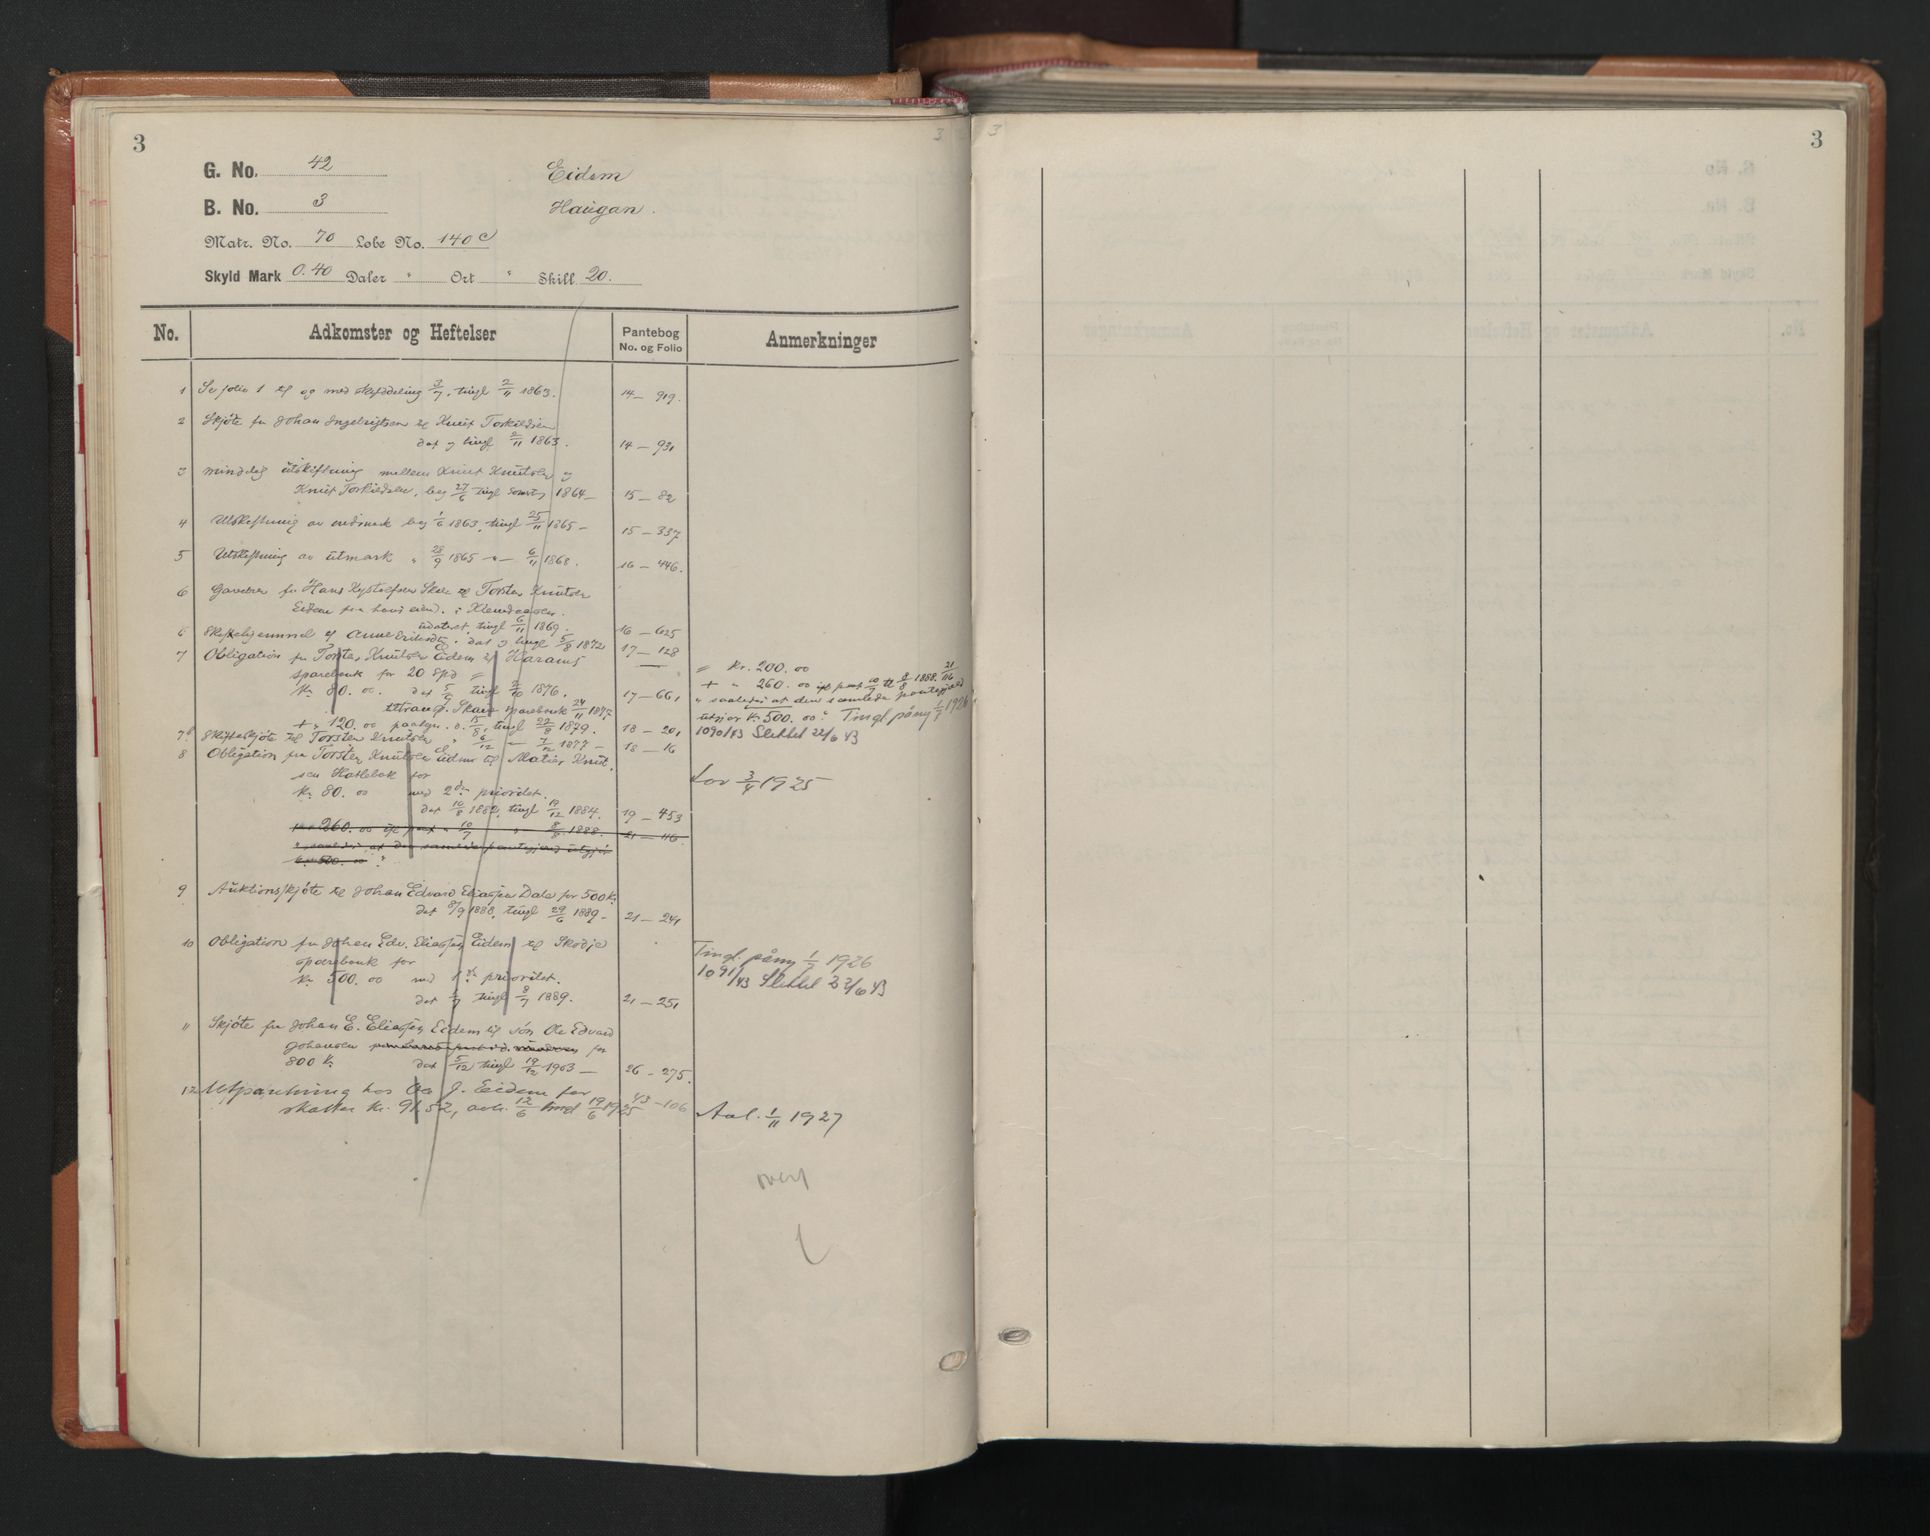 3
G. No. 42 Eidem
B. No. 3 Haugan.
Matr. No. 70 Løbe No. 140 c
Skyld Mark 0.40 Daler " Ort " Skill. 20.
No. Adkomster og Heftelser Pantebog No. og Folio Anmerkninger
1 Se folio 1 til og med skylddeling 3/7, tingl 2/11 1863. 14 — 919.
2 Skjöte fra Johan Ingebrigtsen til Knut Torkildsen
dat og tingl 2/11 1863. 14 — 931
3 mindelig utskiftning mellem Knut Knutsen og
Knut Torkildsen, beg 27/6 tingl 1864 — 15 — 82
4 Utskiftning av indmark beg 1/6 1863, tingl 25/11 1865 — 15 — 337
5 Utskiftning av utmark " 28/9 1865 — " — 6/11 1868. 16 — 446.
6 fra Hans til Torsten Knutsen
Eidem fra hans eiend. i
udatert, tingl 6/11 1869. 16 — 625
6 Skiftehjemmel til Anne dat og tingl 5/8 1872 17 — 128
7 Obligation fra Torsten Knutsen Eidem til Harams
sparebank for 20 Spd = = Kr. 200. 00
Kr. 80. 00. dat 5/9 tingl 2/10 1876. 17 — 661 + " 260. 00 ifl paat 10/7 tl 8/8 1888. 21/116
" saaledes at den samlede pantegjæld
transp. sparebank 24/11 1875 utgjør Kr. 500. 00." Tingl. påny 1/7 1926
+ " 120. 00 paategn. d. 15/8, tingl 22/8 1879. 18 — 201 1090/43 Slettet 22/6 43
7 b Skifteskjöte til Torsten Knutsen " 6/12 — " — 7/12 1877 — 18 — 16
8 Obligation fra Torsten Knutsen Eidem til Matias Knut-
sen for Lov 3/4 1925
Kr. 80. 00 med 2den prioritet.
dat 10/8 1882, tingl 19/12 1884. 19 — 453
260. 00 ifl paat " 10/7 " 8/8 1888. 21 — 116
" saaledes at den samlede pantegjæld utgjør
kr. 500. 00 "
9 Auktionsskjöte til Johan Edvard Eliassen Dale for 500 Kr.
dat 8/9 1888, tingl 29/6 1889 — 21 — 241
10 Obligation fra Johan Edv. Eliassen Eidem til Skodje
sparebank for Tingl. påny 1/7 1926
Kr. 500. 00 med 1ste prioritet. 1091/43 Slettet 22/6 43
dat 1/7 tingl 8/7 1889. 21 — 251
11 Skjöte fra Johan E. Eliassen Eidem til sön Ole Edvard
Johansen for
800 Kr. dat 5/12 tingl 19/12 1903 — 26 — 275.
12 Utpantning hos Ole J. Eidem for
skatter kr. 91.52, avh. 12/6 tingl 19/6 1925 43 — 106 Avl. 1/11 1927
3
3